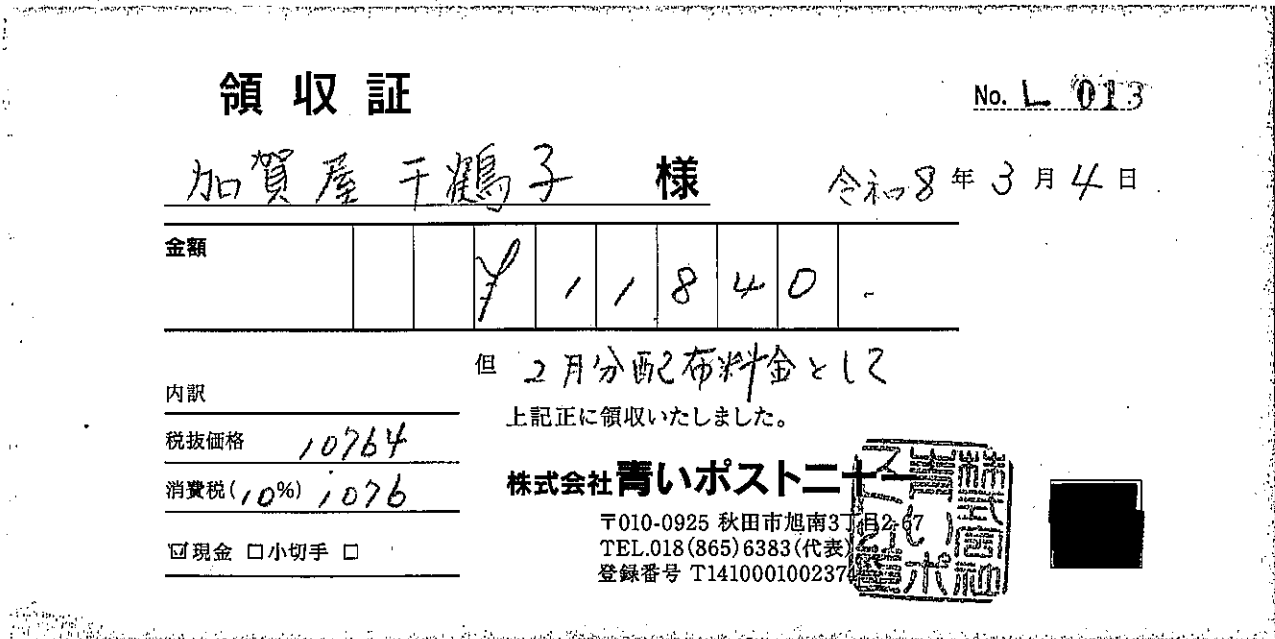 領収証
No. L 013
加賀屋 千鶴子 様
令和8年3月4日
金額 ¥11840-
但 2月分配布料金として
上記正に領収いたしました。
内訳
税抜価格 10764
消費税(10%) 1076
☑現金 □小切手 □
株式会社青いポスト
〒010-0925 秋田市旭南3丁目2-67
TEL.018(865)6383(代表)
登録番号 T1410001002374